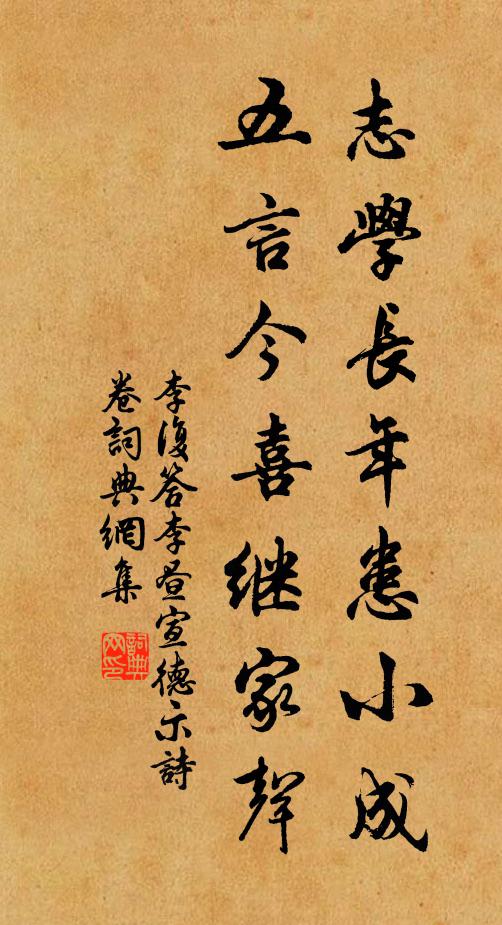 志學長年患小成
五言今喜継家聲
李復答李昼宣德示詩
卷詞典網集
詞典
网印